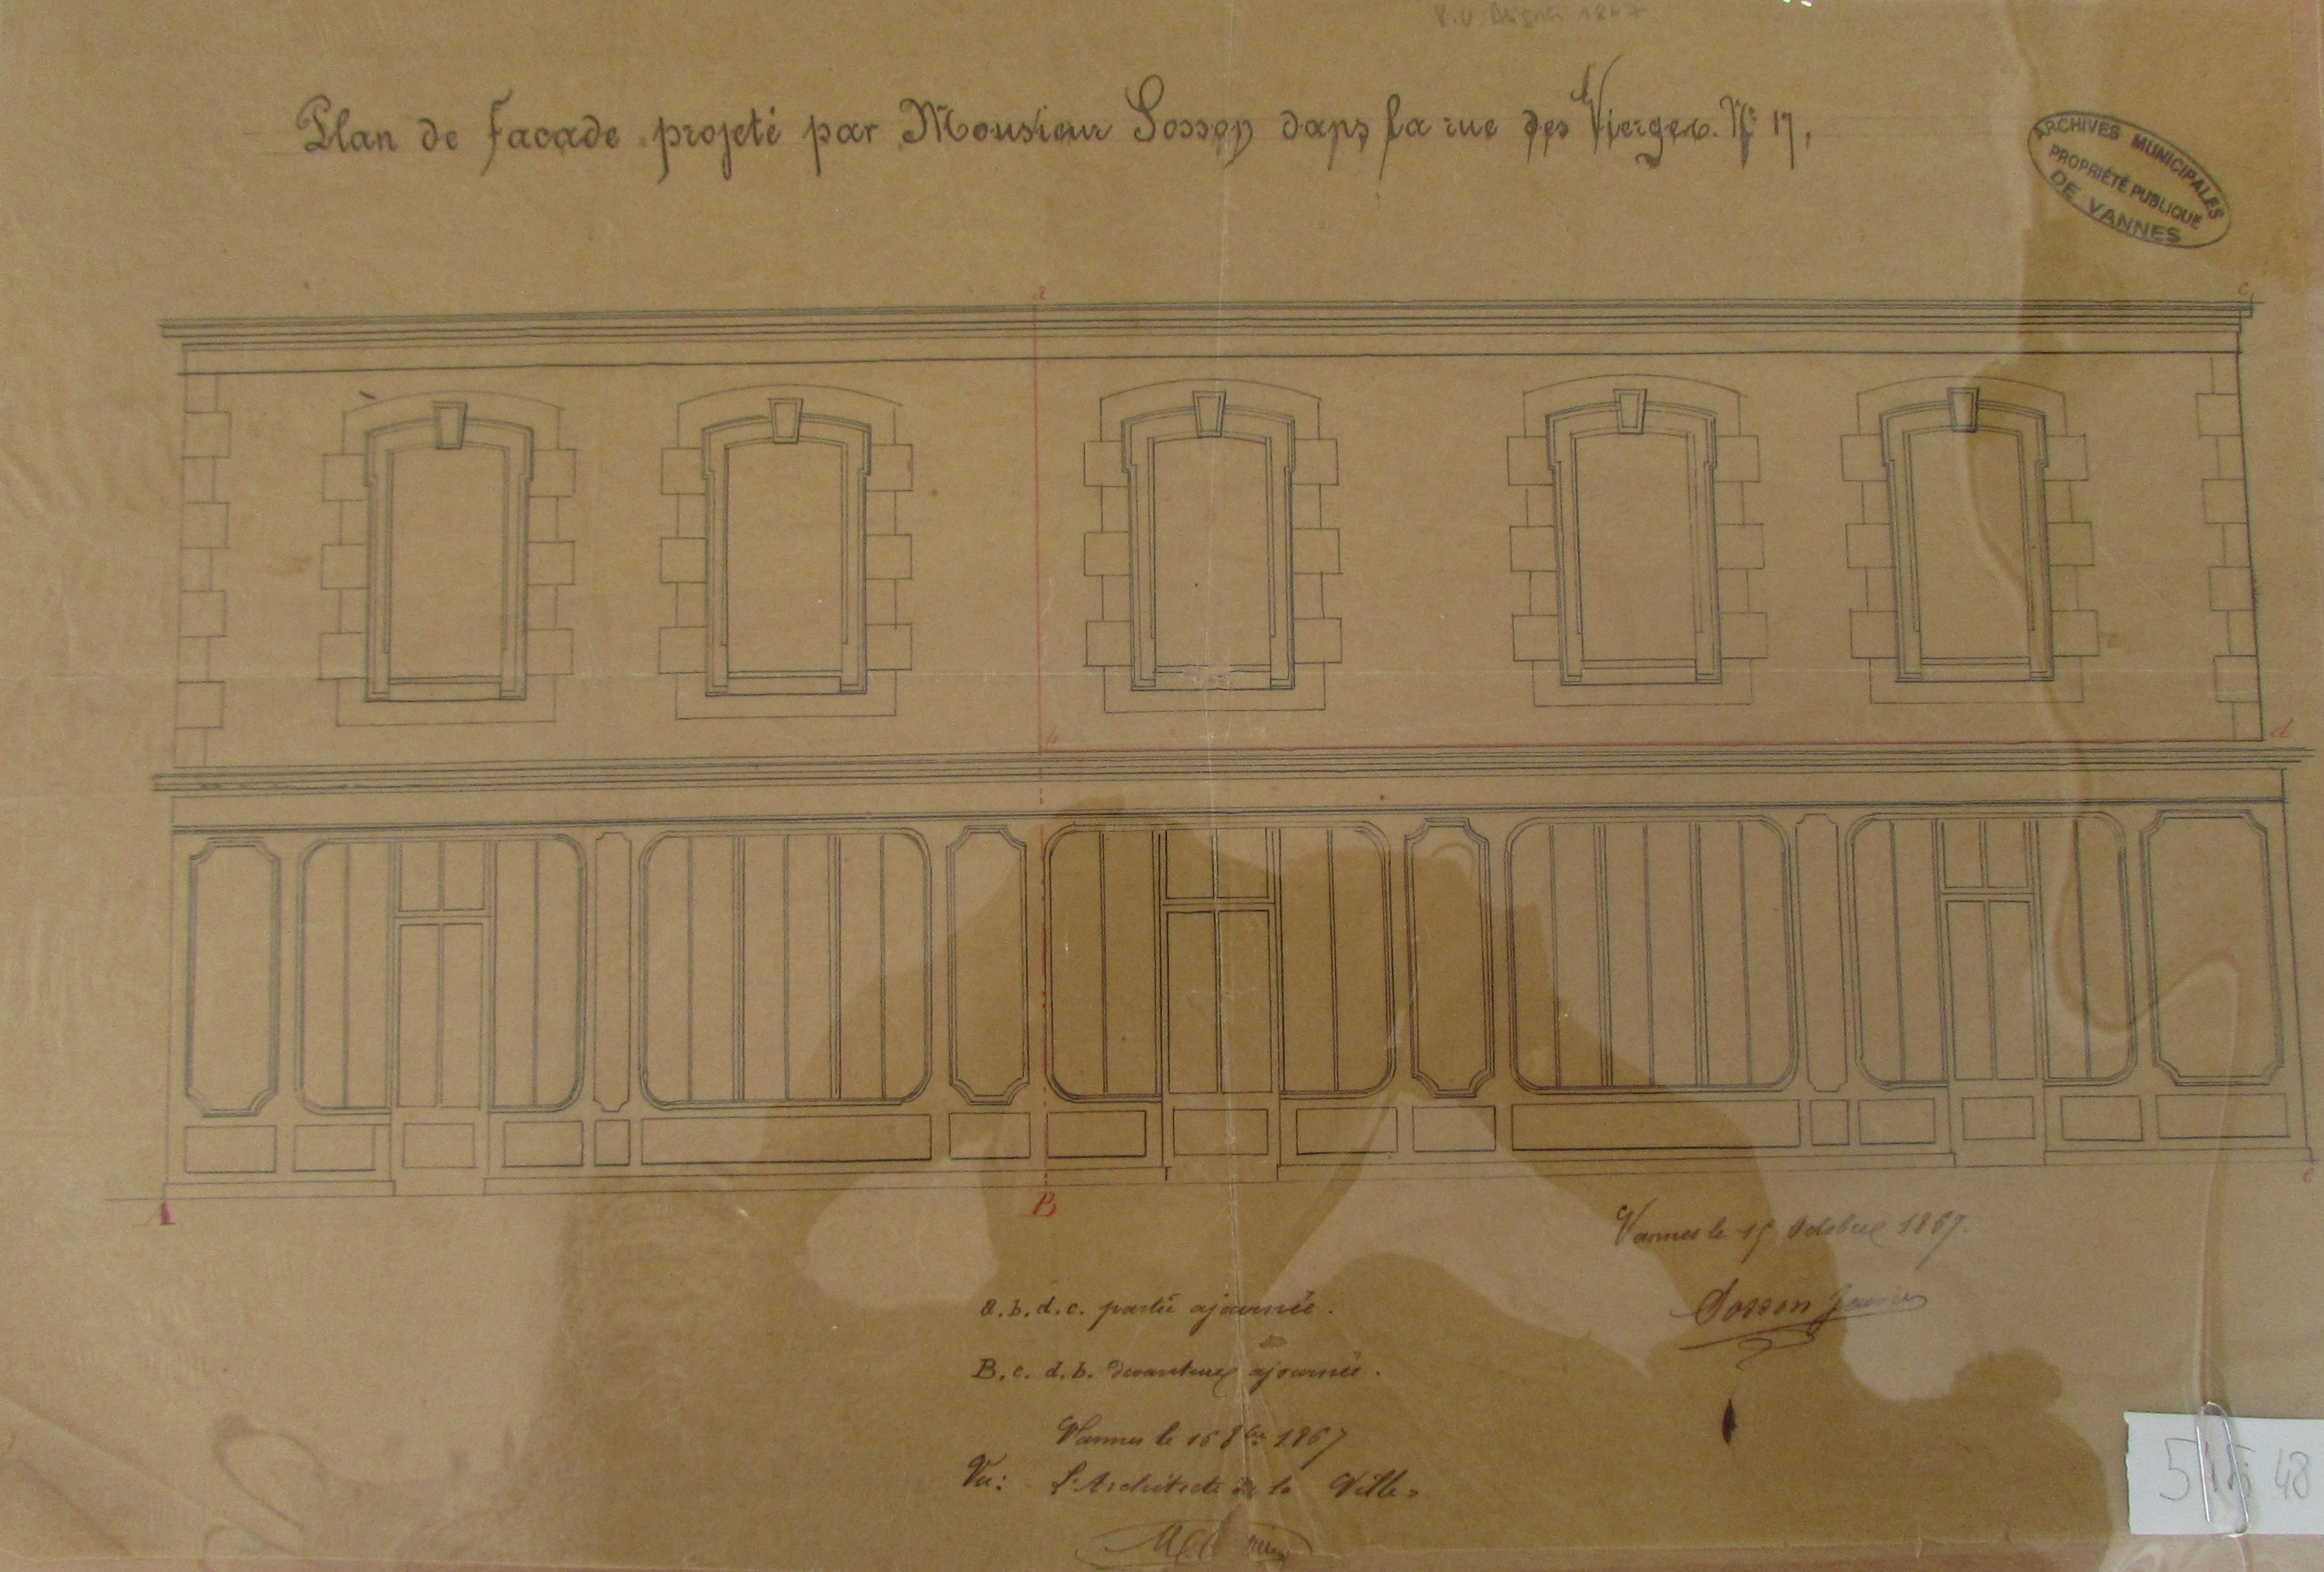 1867
Plan de facade projeté par Monsieur Sosson dans la rue des Vierges. N° 17,
ARCHIVES MUNICIPALES
PROPRIÉTÉ PUBLIQUE
DE VANNES
a c
b d
A B c
Vannes le 15 Octobre 1867.
Sosson
a. b. d. c. partie ajournée.
B. c. d. b. devanture ajournée.
Vannes le 16 8bre 1867
Vu: L'Architecte de la Ville
48